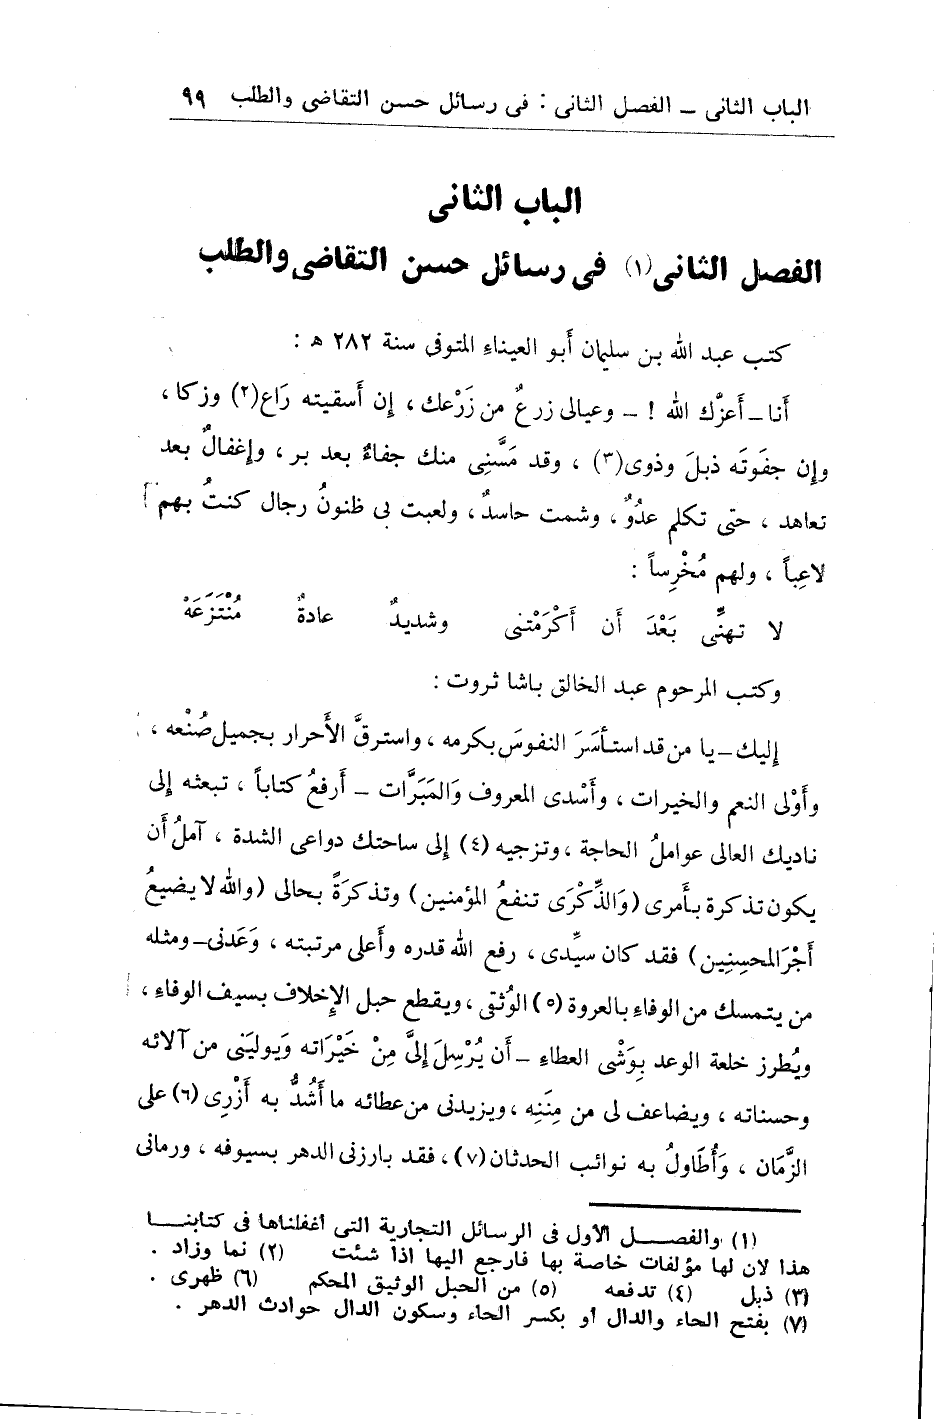 الباب الثانى ــ الفصل الثانى : فى رسائل حسن التقاضى والطلب ٩٩
الباب الثانى
الفصل الثانى (١) فى رسائل حسن التقاضى والطلب
كتب عبد الله بن سليمان أبو العيناء المتوفى سنة ٢٨٢ ه :
أنا ـ أعزَّك الله ! ـ وعيالى زرعٌ من زَرْعك ، إن أسقيته رَاع(٢) وزكا ،
وإن جفَوتَه ذبلَ وذوى(٣) ، وقد مَسَّنِى منك جفاءٌ بعد بر ، وإغفالٌ بعد
تعاهد ، حتى تكلم عدُوٌ ، وشمت حاسدٌ ، ولعبت بى ظنونُ رجال كنتُ بهم
لاعِباً ، ولهم مُخْرِساً :
لا تهنِّى بَعْدَ أن أكْرَمْتنى وشديدٌ عادةٌ مُنْتَزَعَهْ
وكتب المرحوم عبد الخالق باشا ثروت :
إليك ـ يا من قد استأسَرَ النفوسَ بكرمه ، واسترقَّ الأَحرار بجميل صُنْعه ،
وأوْلى النعم والخيرات ، وأسْدى المعروف وَالمَبَرَّات ــ أرفعُ كتاباً ، تبعثه إلى
ناديك العالى عواملُ الحاجة ، وتزجيه (٤) إلى ساحتك دواعى الشدة ، آملُ أن
يكون تذكرة بأمرى (وَالذِّكْرَى تنفعُ المؤمنين) وتذكرَةً بحالى (والله لا يضيعُ
أجْرَ المحسِنِين) فقد كان سيِّدى ، رفع الله قدره وأعلى مرتبته ، وَعَدنى ـ ومثله
من يتمسك من الوفاء بالعروة (٥) الوُثقى ، ويقطع حبل الإِخلاف بسيف الوفاء ،
ويُطرز خلعة الوعد بِوَشْى العطاء ـ أن يُرْسِلَ إلىَّ مِنْ خَيْرَاته وَيوليَنى من آلائه
وحسناته ، ويضاعف لى من مِنَنِه ، ويزيدنى من عطائه ما أشُدُّ به أزْرِى (٦) على
الزَّمَان ، وَأُطَاولُ به نوائب الحدثان (٧) ، فقد بارزنى الدهر بسيوفه ، ورمانى
(١) والفصل الأول فى الرسائل التجارية التى أغفلناها فى كتابنا
هذا لان لها مؤلفات خاصة بها فارجع اليها اذا شئت (٢) نما وزاد .
(٣) ذبل (٤) تدفعه (٥) من الحبل الوثيق المحكم (٦) ظهرى .
(٧) بفتح الحاء والدال او بكسر الحاء وسكون الدال حوادث الدهر .